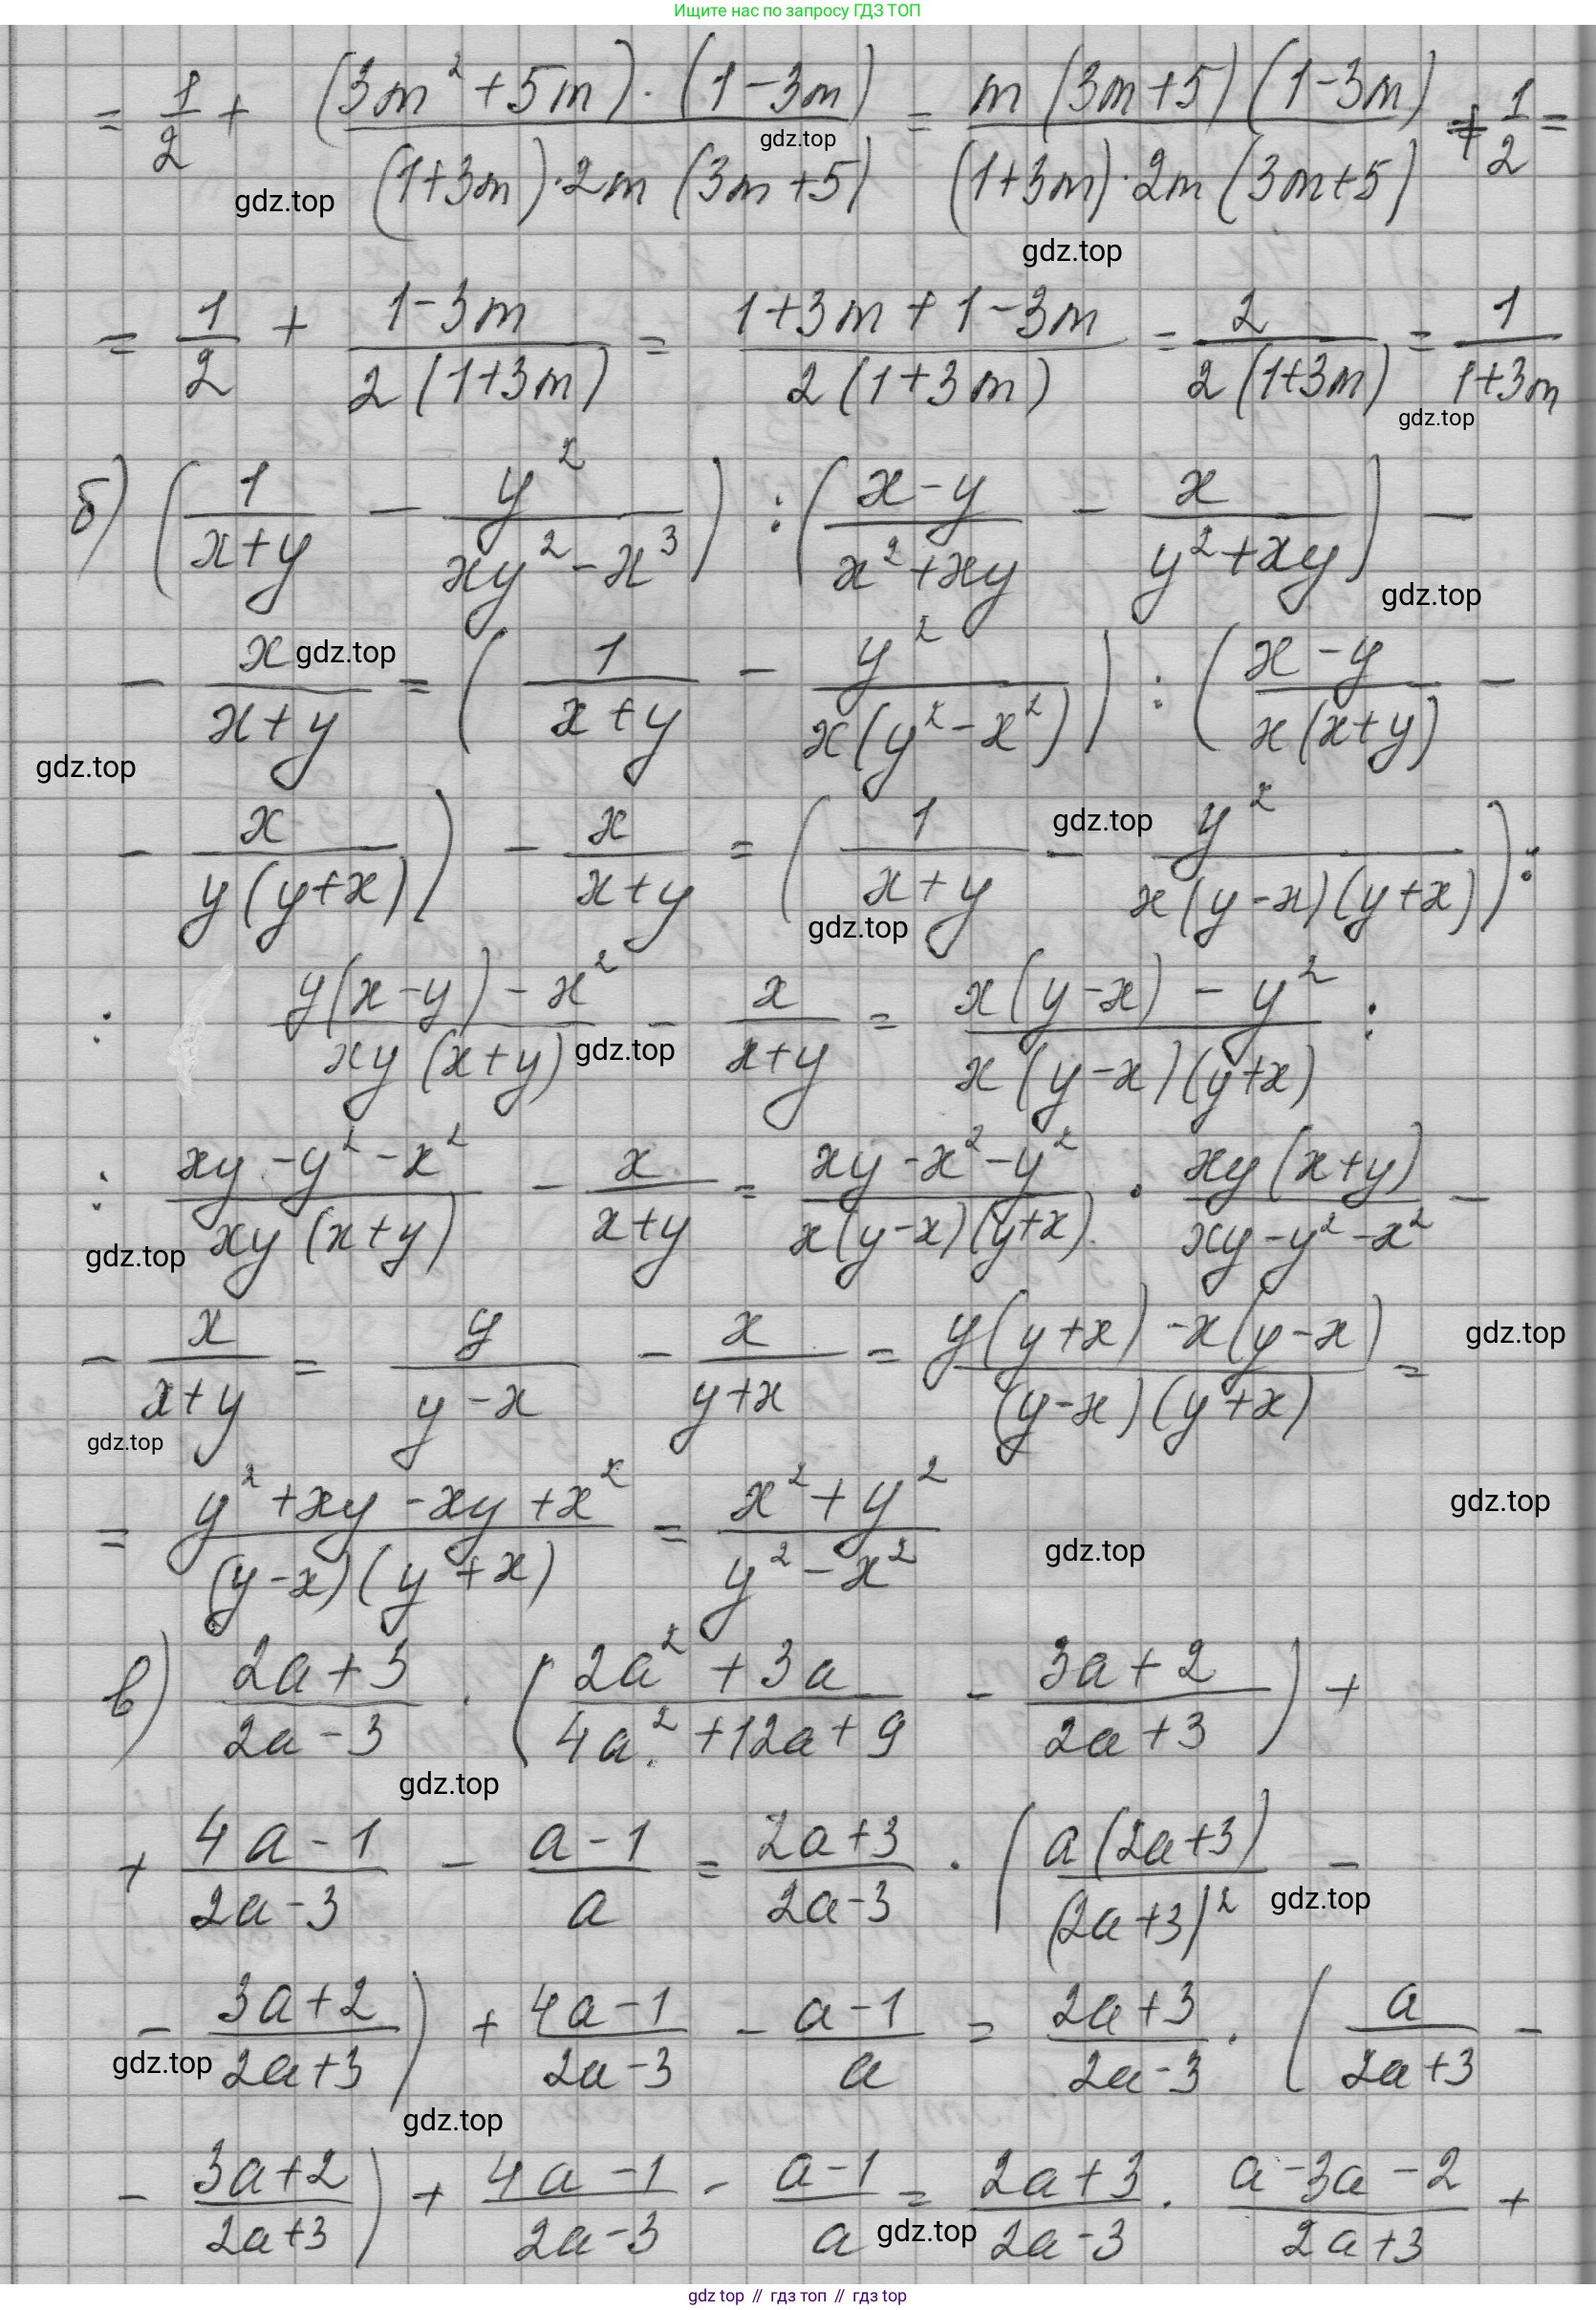 Ищите нас по запросу ГДЗ ТОП
= 1/2 + ((3m² + 5m) · (1 - 3m))/((1+3m) · 2m (3m+5)) = (m (3m+5) (1-3m))/((1+3m) · 2m (3m+5)) + 1/2 =
gdz.top
gdz.top
gdz.top
= 1/2 + (1-3m)/(2 (1+3m)) = (1+3m + 1-3m)/(2 (1+3m)) = 2/(2 (1+3m)) = 1/(1+3m)
gdz.top
б) (1/(x+y) - y²/(xy² - x³)) : ((x-y)/(x²+xy) - x/(y²+xy)) -
gdz.top
- x/(x+y) = (1/(x+y) - y²/(x(y²-x²))) : ((x-y)/(x(x+y)) -
gdz.top
gdz.top
- x/(y(y+x))) - x/(x+y) = (1/(x+y) - y²/(x(y-x)(y+x))) :
gdz.top
gdz.top
: (y(x-y) - x²)/(xy (x+y)) - x/(x+y) = (x(y-x) - y²)/(x(y-x)(y+x)) :
gdz.top
: (xy - y² - x²)/(xy (x+y)) - x/(x+y) = (xy - x² - y²)/(x(y-x)(y+x)) · (xy (x+y))/(xy - y² - x²) -
gdz.top
- x/(x+y) = y/(y-x) - x/(y+x) = (y(y+x) - x(y-x))/((y-x)(y+x)) =
gdz.top
gdz.top
= (y² + xy - xy + x²)/((y-x)(y+x)) = (x² + y²)/(y² - x²)
gdz.top
gdz.top
в) (2a+3)/(2a-3) · ((2a² + 3a)/(4a² + 12a + 9) - (3a+2)/(2a+3)) +
gdz.top
+ (4a-1)/(2a-3) - (a-1)/a = (2a+3)/(2a-3) · ((a(2a+3))/((2a+3)²) -
gdz.top
- (3a+2)/(2a+3)) + (4a-1)/(2a-3) - (a-1)/a = (2a+3)/(2a-3) · (a/(2a+3) -
gdz.top
gdz.top
- (3a+2)/(2a+3)) + (4a-1)/(2a-3) - (a-1)/a = (2a+3)/(2a-3) · (a-3a-2)/(2a+3) +
gdz.top
gdz top // гдз топ // gdz top